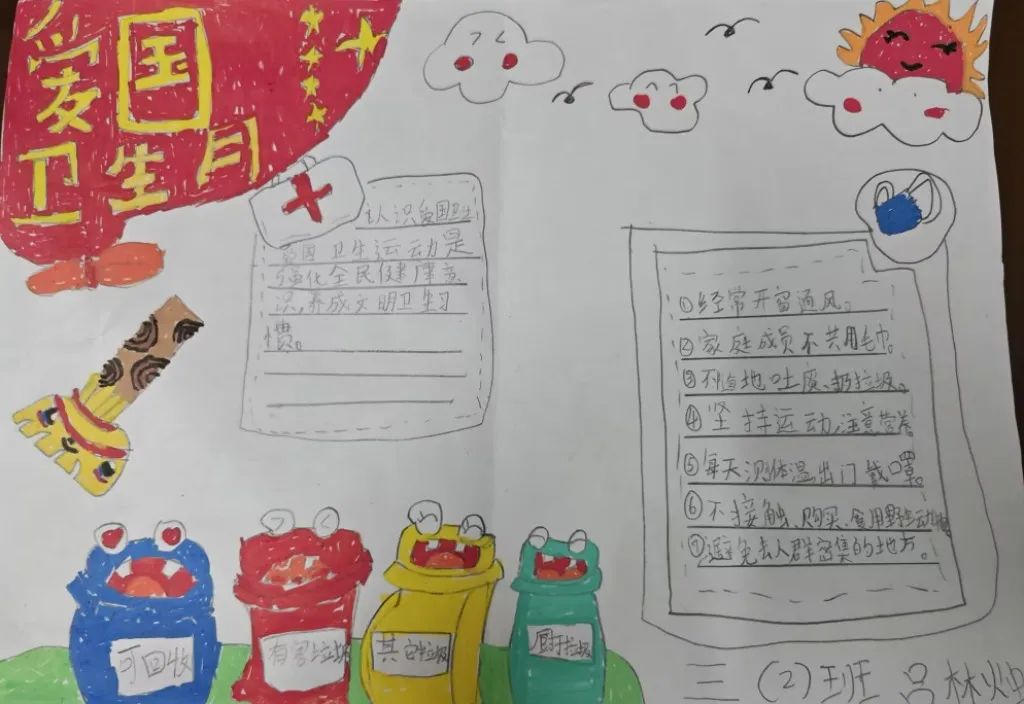 爱国
卫生月
认识爱国卫生
爱国卫生运动是
强化全民健康意
识,养成文明卫生习
惯。
①经常开窗通风。
②家庭成员不共用毛巾。
③不随地吐痰、扔垃圾。
④坚持运动,注意营养
⑤每天测体温出门戴口罩。
⑥不接触、购买、食用野生动物
⑦避免去人群密集的地方。
可回收
有害垃圾
其它垃圾
厨打垃圾
三(2)班 吕林